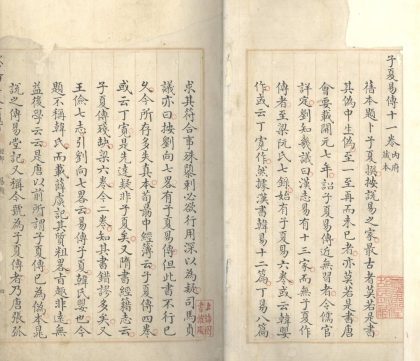 子夏易傳十一卷內府藏本
舊本題卜子夏撰按說易之家最古者莫若是書
其偽中生偽至一至再而未已者亦莫若是書唐
會要載開元七年詔子夏易傳近無習者令儒官
詳定劉知幾議曰漢志易有十三家而無子夏作
傳者至梁阮氏七錄始有子夏易六卷或云韓嬰
作或云丁寬作然據漢書韓易十二篇丁易八篇
求其符合事殊隳剌必欲行用深以為疑司馬貞
議亦曰按劉向七畧有子夏易傳但此書不行已
久今所存多失真本荀勖中經簿云子夏傳四卷
或云丁寬是先達疑非子夏矣又隋書經籍志云
子夏傳殘缺梁六卷今二卷知其書錯謬多矣又
王儉七志引劉向七畧云易傳子夏韓氏嬰也今
題不稱韓氏而載薛虞記其質粗畧旨趣非遠無
益後學云云是唐以前所謂子夏傳已為偽本晁
說之傳易堂記又稱今號為子夏傳者乃唐張弧